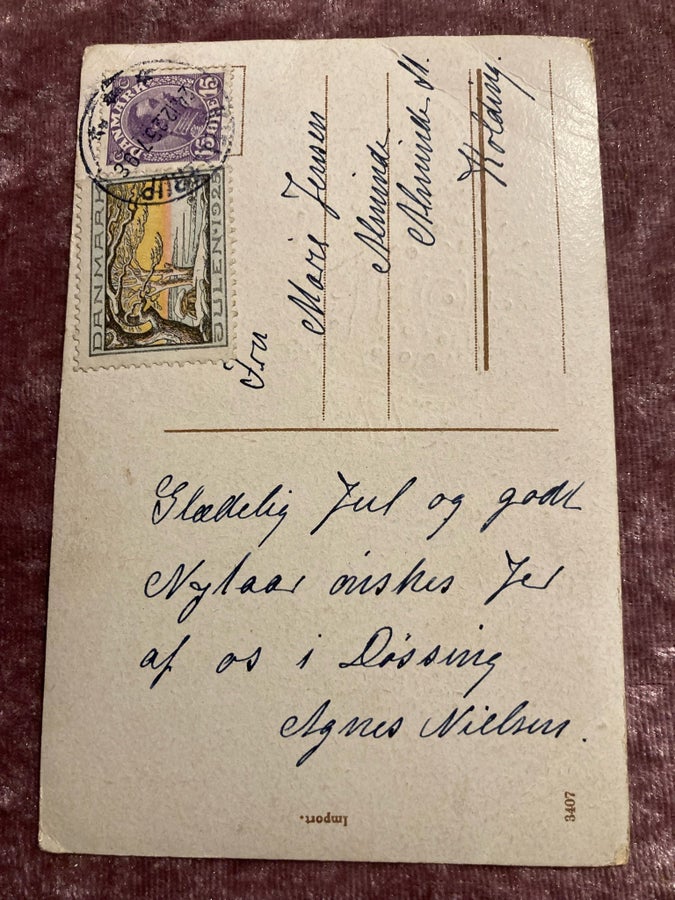 DANMARK
15 ØRE 15
RUP
24.12.25.7-8
DANMARK
JULEN·1925
Fru
Mare Jensen
Alminde
Alminde St.
Kolding.
Glædelig Jul og godt
Nytaar ønskes Jer
af os i Døssing
Agnes Nielsen.
Import.
3407